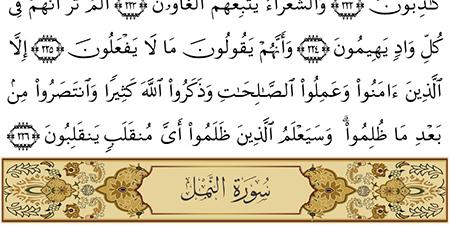 كَـٰذِبُونَ ﴿٢٢٣﴾ وَٱلشُّعَرَآءُ يَتَّبِعُهُمُ ٱلْغَاوُۥنَ ﴿٢٢٤﴾ أَلَمْ تَرَ أَنَّهُمْ فِى
كُلِّ وَادٍ يَهِيمُونَ ﴿٢٢٤﴾ وَأَنَّهُمْ يَقُولُونَ مَا لَا يَفْعَلُونَ ﴿٢٢٥﴾ إِلَّا
ٱلَّذِينَ ءَامَنُوا۟ وَعَمِلُوا۟ ٱلصَّـٰلِحَـٰتِ وَذَكَرُوا۟ ٱللَّهَ كَثِيرًا وَٱنتَصَرُوا۟ مِنۢ
بَعْدِ مَا ظُلِمُوا۟ ۗ وَسَيَعْلَمُ ٱلَّذِينَ ظَلَمُوٓا۟ أَىَّ مُنقَلَبٍ يَنقَلِبُونَ ﴿٢٢٦﴾
سُورَةُ النَّمْلِ